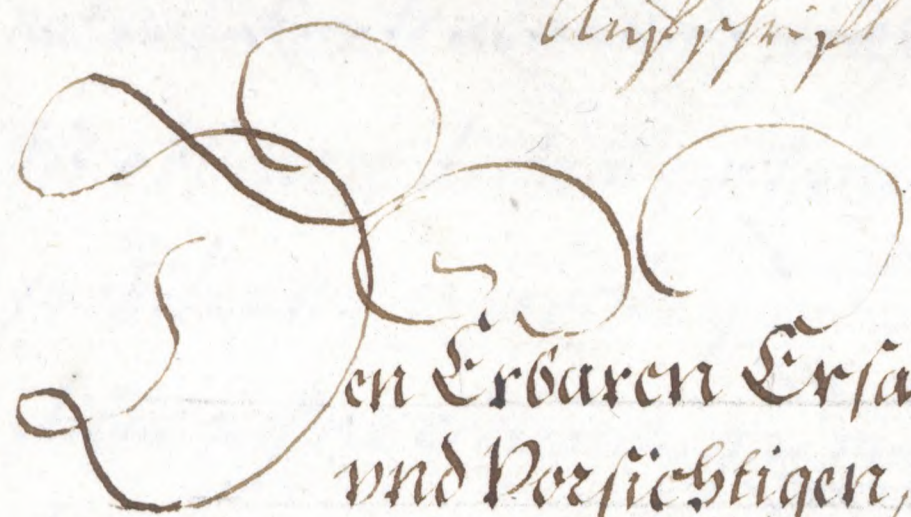 Auffschrifft
Den Erbaren Ersa
vnd Vorsichtigen,